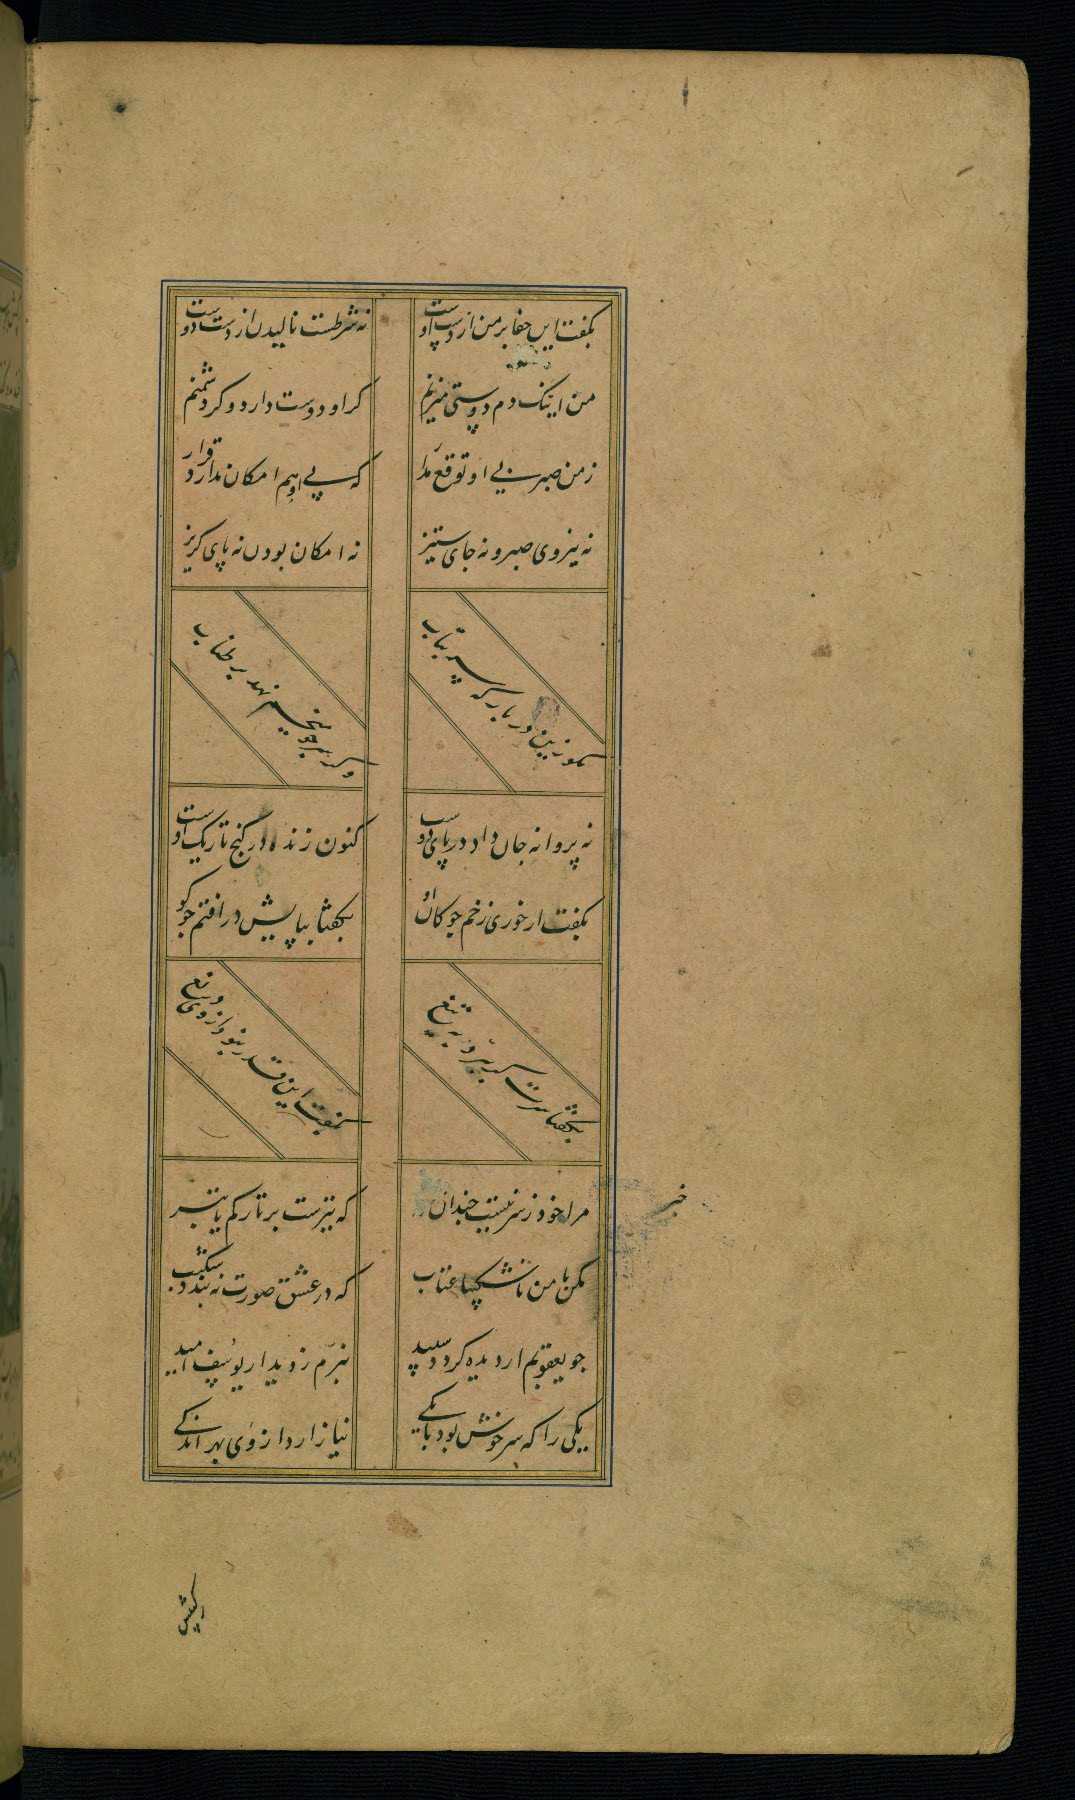 بگفت این جفا بر من از دست اوست
نه شرطست نالیدن از دست دوست
من اینک دم دوستی میزنم
کر او دوست دارد و کر دشمنم
ز من صبر بی او توقع مدار
که بی او هم امکان ندارد قرار
نه نیروی صبر و نه جای ستیز
نه امکان بودن نه پای کریز
مگو زین در بارکه سر بتاب
وکر سر چو میخم نهد بر طناب
نه پروانه جان داد در پای دوست
کنون زنده در کنج تاریک اوست
بگفت ار خوری زخم چوکان او
بگفتا بپایش در افتم چو کو
بگفتا سرت کر ببرد به تیغ
بگفت این قدر نبود از وی دریغ
مرا خود ز سر نیست چندان خبر
که تیزست بر تارکم یا تبر
مکن با من ناشکیبا عتاب
که در عشق صورت نه بندد شکیب
چو یعقوبم ار دیده کردد سپید
نبرم ز دیدار یوسف امید
یکی را که سر خوش بود با یکی
نیازارد از وی بهر اندکی
رکیبش